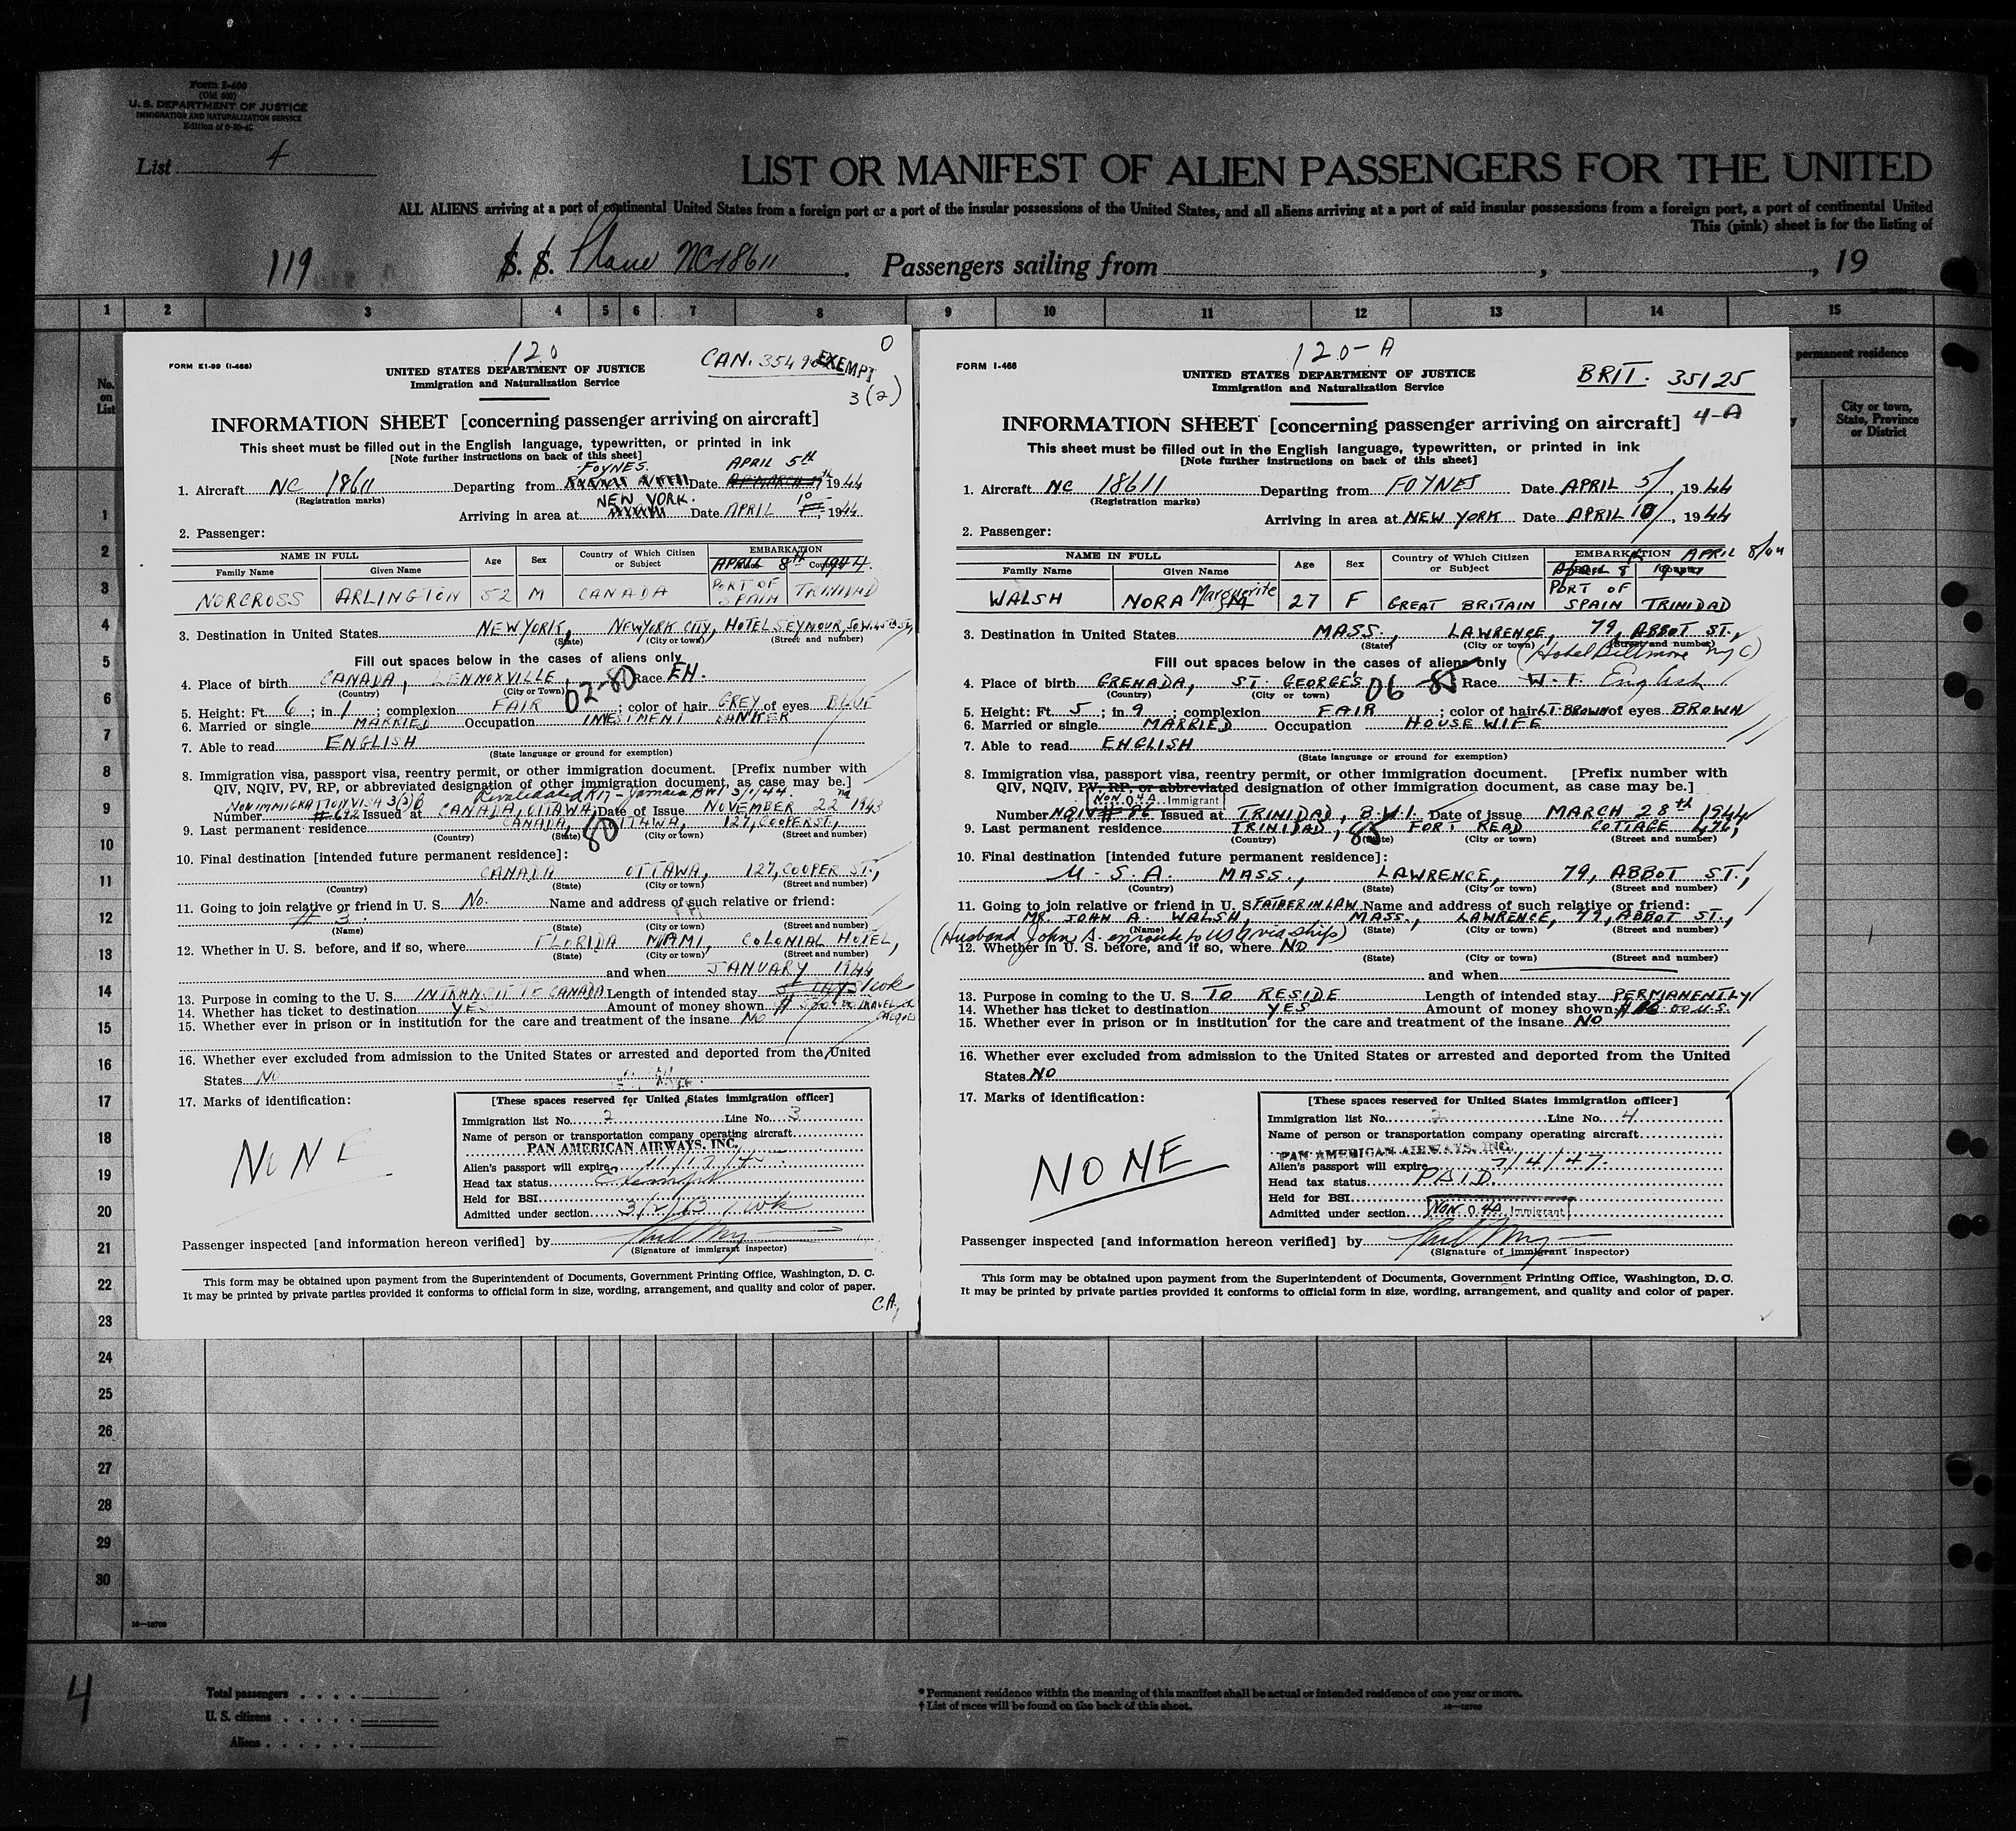 Form I-400
(Old 500)
U. S. DEPARTMENT OF JUSTICE
IMMIGRATION AND NATURALIZATION SERVICE
List 4
LIST OR MANIFEST OF ALIEN PASSENGERS FOR THE UNITED
ALL ALIENS arriving at a port of continental United States from a foreign port or a port of the insular possessions of the United States, and all aliens arriving at a port of said insular possessions from a foreign port, a port of continental United
This (pink) sheet is for the listing of
119 S. S. Plane NC18611. Passengers sailing from , , 19
1 2 3 4 5 6 7 8 9 10 11 12 13 14 15
No. on List
permanent residence
City or town, State, Province or District
120
FORM E1-99 (I-466)
CAN. EXEMPT 0
3(2)
UNITED STATES DEPARTMENT OF JUSTICE
Immigration and Naturalization Service
INFORMATION SHEET [concerning passenger arriving on aircraft]
This sheet must be filled out in the English language, typewritten, or printed in ink
[Note further instructions on back of this sheet]
FOYNES. APRIL 5th
1. Aircraft NC 18611 Departing from Date 1944
(Registration marks)
NEW YORK.
Arriving in area at Date APRIL 10, 1944
2. Passenger:
NAME IN FULL Age Sex Country of Which Citizen or Subject EMBARKATION
Family Name Given Name APRIL 8th 1944.
NORCROSS ARLINGTON 52 M CANADA PORT OF SPAIN TRINIDAD
3. Destination in United States NEW YORK, NEW YORK CITY, HOTEL SEYMOUR, 50 W. 45th ST,
(State) (City or town) (Street and number)
Fill out spaces below in the cases of aliens only
4. Place of birth CANADA, LENNOXVILLE 02-80 Race EH.
(Country) (City or Town)
5. Height: Ft. 6; in 1; complexion FAIR; color of hair GREY of eyes BLUE
6. Married or single MARRIED Occupation INVESTMENT BANKER
7. Able to read ENGLISH
(State language or ground for exemption)
8. Immigration visa, passport visa, reentry permit, or other immigration document. [Prefix number with
QIV, NQIV, PV, RP, or abbreviated designation of other immigration document, as case may be.]
NON IMMIGRATION VISA 3(2)
Number #692 Issued at CANADA, OTTAWA, Date of Issue NOVEMBER 22nd 1943
9. Last permanent residence CANADA, 80 OTTAWA, 127, COOPER ST.,
(Country) (State) (City or town) (Street and number)
10. Final destination [intended future permanent residence]:
CANADA OTTAWA, 127, COOPER ST.,
(Country) (State) (City or town) (Street and number)
11. Going to join relative or friend in U. S. No. Name and address of such relative or friend:
# 3.
(Name) (State) (City or town) (Street and number)
12. Whether in U. S. before, and if so, where FLORIDA MIAMI, COLONIAL HOTEL,
(State) (City or town) (Street and number)
and when JANUARY 1944
13. Purpose in coming to the U. S. INTRANSIT TO CANADA Length of intended stay 1 wk
14. Whether has ticket to destination YES Amount of money shown
15. Whether ever in prison or in institution for the care and treatment of the insane No
16. Whether ever excluded from admission to the United States or arrested and deported from the United
States NO
17. Marks of identification:
NONE
[These spaces reserved for United States immigration officer]
Immigration list No. 2 Line No. 3
Name of person or transportation company operating aircraft
PAN AMERICAN AIRWAYS, INC.
Alien's passport will expire
Head tax status Exempt
Held for BSI
Admitted under section 1 wk
Passenger inspected [and information hereon verified] by
(Signature of immigrant inspector)
This form may be obtained upon payment from the Superintendent of Documents, Government Printing Office, Washington, D. C.
It may be printed by private parties provided it conforms to official form in size, wording, arrangement, and quality and color of paper.
C.A.
120-A
FORM I-466
BRIT. 35125
UNITED STATES DEPARTMENT OF JUSTICE
Immigration and Naturalization Service
INFORMATION SHEET [concerning passenger arriving on aircraft] 4-A
This sheet must be filled out in the English language, typewritten, or printed in ink
[Note further instructions on back of this sheet]
1. Aircraft NC 18611 Departing from FOYNES Date APRIL 5/, 1944
(Registration marks)
Arriving in area at NEW YORK Date APRIL 10/, 1944
2. Passenger:
NAME IN FULL Age Sex Country of Which Citizen or Subject EMBARKATION APRIL 8/44
Family Name Given Name
WALSH NORA Marguerite 27 F GREAT BRITAIN PORT OF SPAIN TRINIDAD
3. Destination in United States MASS., LAWRENCE, 79, ABBOT ST.,
(State) (City or town) (Street and number)
Fill out spaces below in the cases of aliens only (Hotel Biltmore NYC)
4. Place of birth GRENADA, ST. GEORGE'S 06 85 Race W. I. English
(Country) (City or town)
5. Height: Ft. 5; in 9; complexion FAIR; color of hair LT. BROWN of eyes BROWN
6. Married or single MARRIED Occupation HOUSE WIFE
7. Able to read ENGLISH
(State language or ground for exemption)
8. Immigration visa, passport visa, reentry permit, or other immigration document. [Prefix number with
QIV, NQIV, PV, RP, or abbreviated designation of other immigration document, as case may be.]
Non Q 4A Immigrant
Number NQIV # 86 Issued at TRINIDAD, B.W.I. Date of issue MARCH 28th 1944
9. Last permanent residence TRINIDAD, 85 FORT READ COTTAGE 476,
(Country) (State) (City or town) (Street and number)
10. Final destination [intended future permanent residence]:
U. S. A. MASS., LAWRENCE, 79, ABBOT ST.,
(Country) (State) (City or town) (Street and number)
11. Going to join relative or friend in U. S. FATHER IN LAW Name and address of such relative or friend:
MR. JOHN A. WALSH, MASS., LAWRENCE, 79, ABBOT ST.,
(Name) (State) (City or town) (Street and number)
(Husband John A. enroute to US via ship)
12. Whether in U. S. before, and if so, where NO
(State) (City or town) (Street and number)
and when
13. Purpose in coming to the U. S. TO RESIDE Length of intended stay PERMANENTLY
14. Whether has ticket to destination YES Amount of money shown
15. Whether ever in prison or in institution for the care and treatment of the insane NO
16. Whether ever excluded from admission to the United States or arrested and deported from the United
States NO
17. Marks of identification:
NONE
[These spaces reserved for United States immigration officer]
Immigration list No. 2 Line No. 4
Name of person or transportation company operating aircraft
PAN AMERICAN AIRWAYS, INC.
Alien's passport will expire 3/4/47.
Head tax status PAID
Held for BSI
Admitted under section Non Q 4A Immigrant
Passenger inspected [and information hereon verified] by
(Signature of immigrant inspector)
This form may be obtained upon payment from the Superintendent of Documents, Government Printing Office, Washington, D. C.
It may be printed by private parties provided it conforms to official form in size, wording, arrangement, and quality and color of paper.
1
2
3
4
5
6
7
8
9
10
11
12
13
14
15
16
17
18
19
20
21
22
23
24
25
26
27
28
29
30
4
Total passengers
U. S. citizens
Aliens
* Permanent residence within the meaning of this manifest shall be actual or intended residence of one year or more.
† List of races will be found on the back of this sheet.